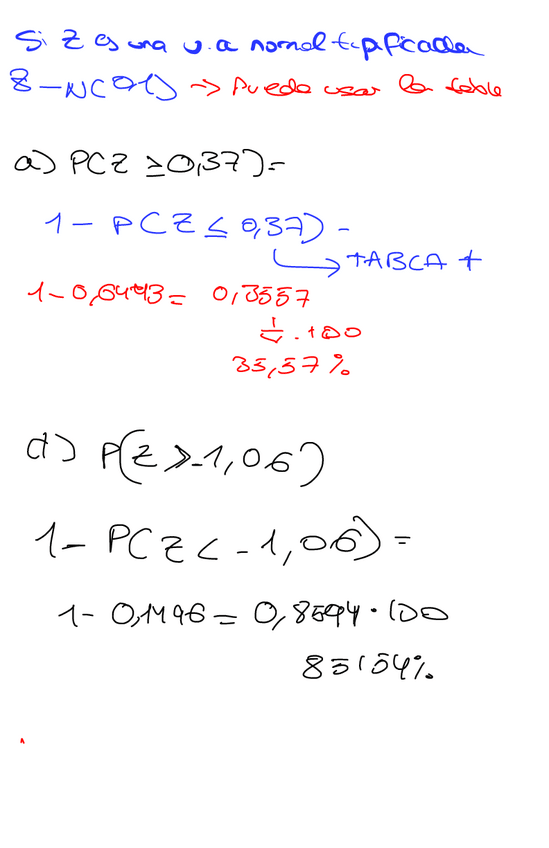 Si Z es una v.a normal tipificada
Z → N(0,1) → Puedo usar la tabla
a) P(Z ≥ 0,37) =
1 - P(Z ≤ 0,37) -
→ TABLA +
1 - 0,6443 = 0,3557
↓ · 100
35,57 %
d) P(Z ≥ -1,06)
1 - P(Z < -1,06) =
1 - 0,1446 = 0,8594 · 100
85,54%